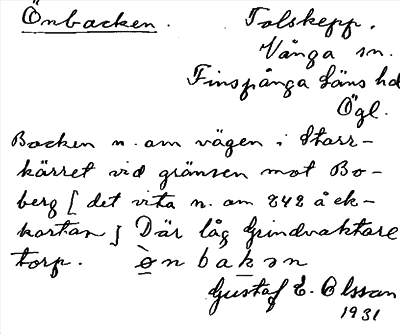 Önbacken. Tolskepp.
Vånga sn.
Finspånga läns hd
Ögl.
Backen n. om vägen i Starr-
kärret vid gränsen mot Bo-
berg [det vita n. om 842 å ek-
kartan] Där låg Grindvaktare
torp. ò̱n bakən
Gustaf E. Olsson
1931